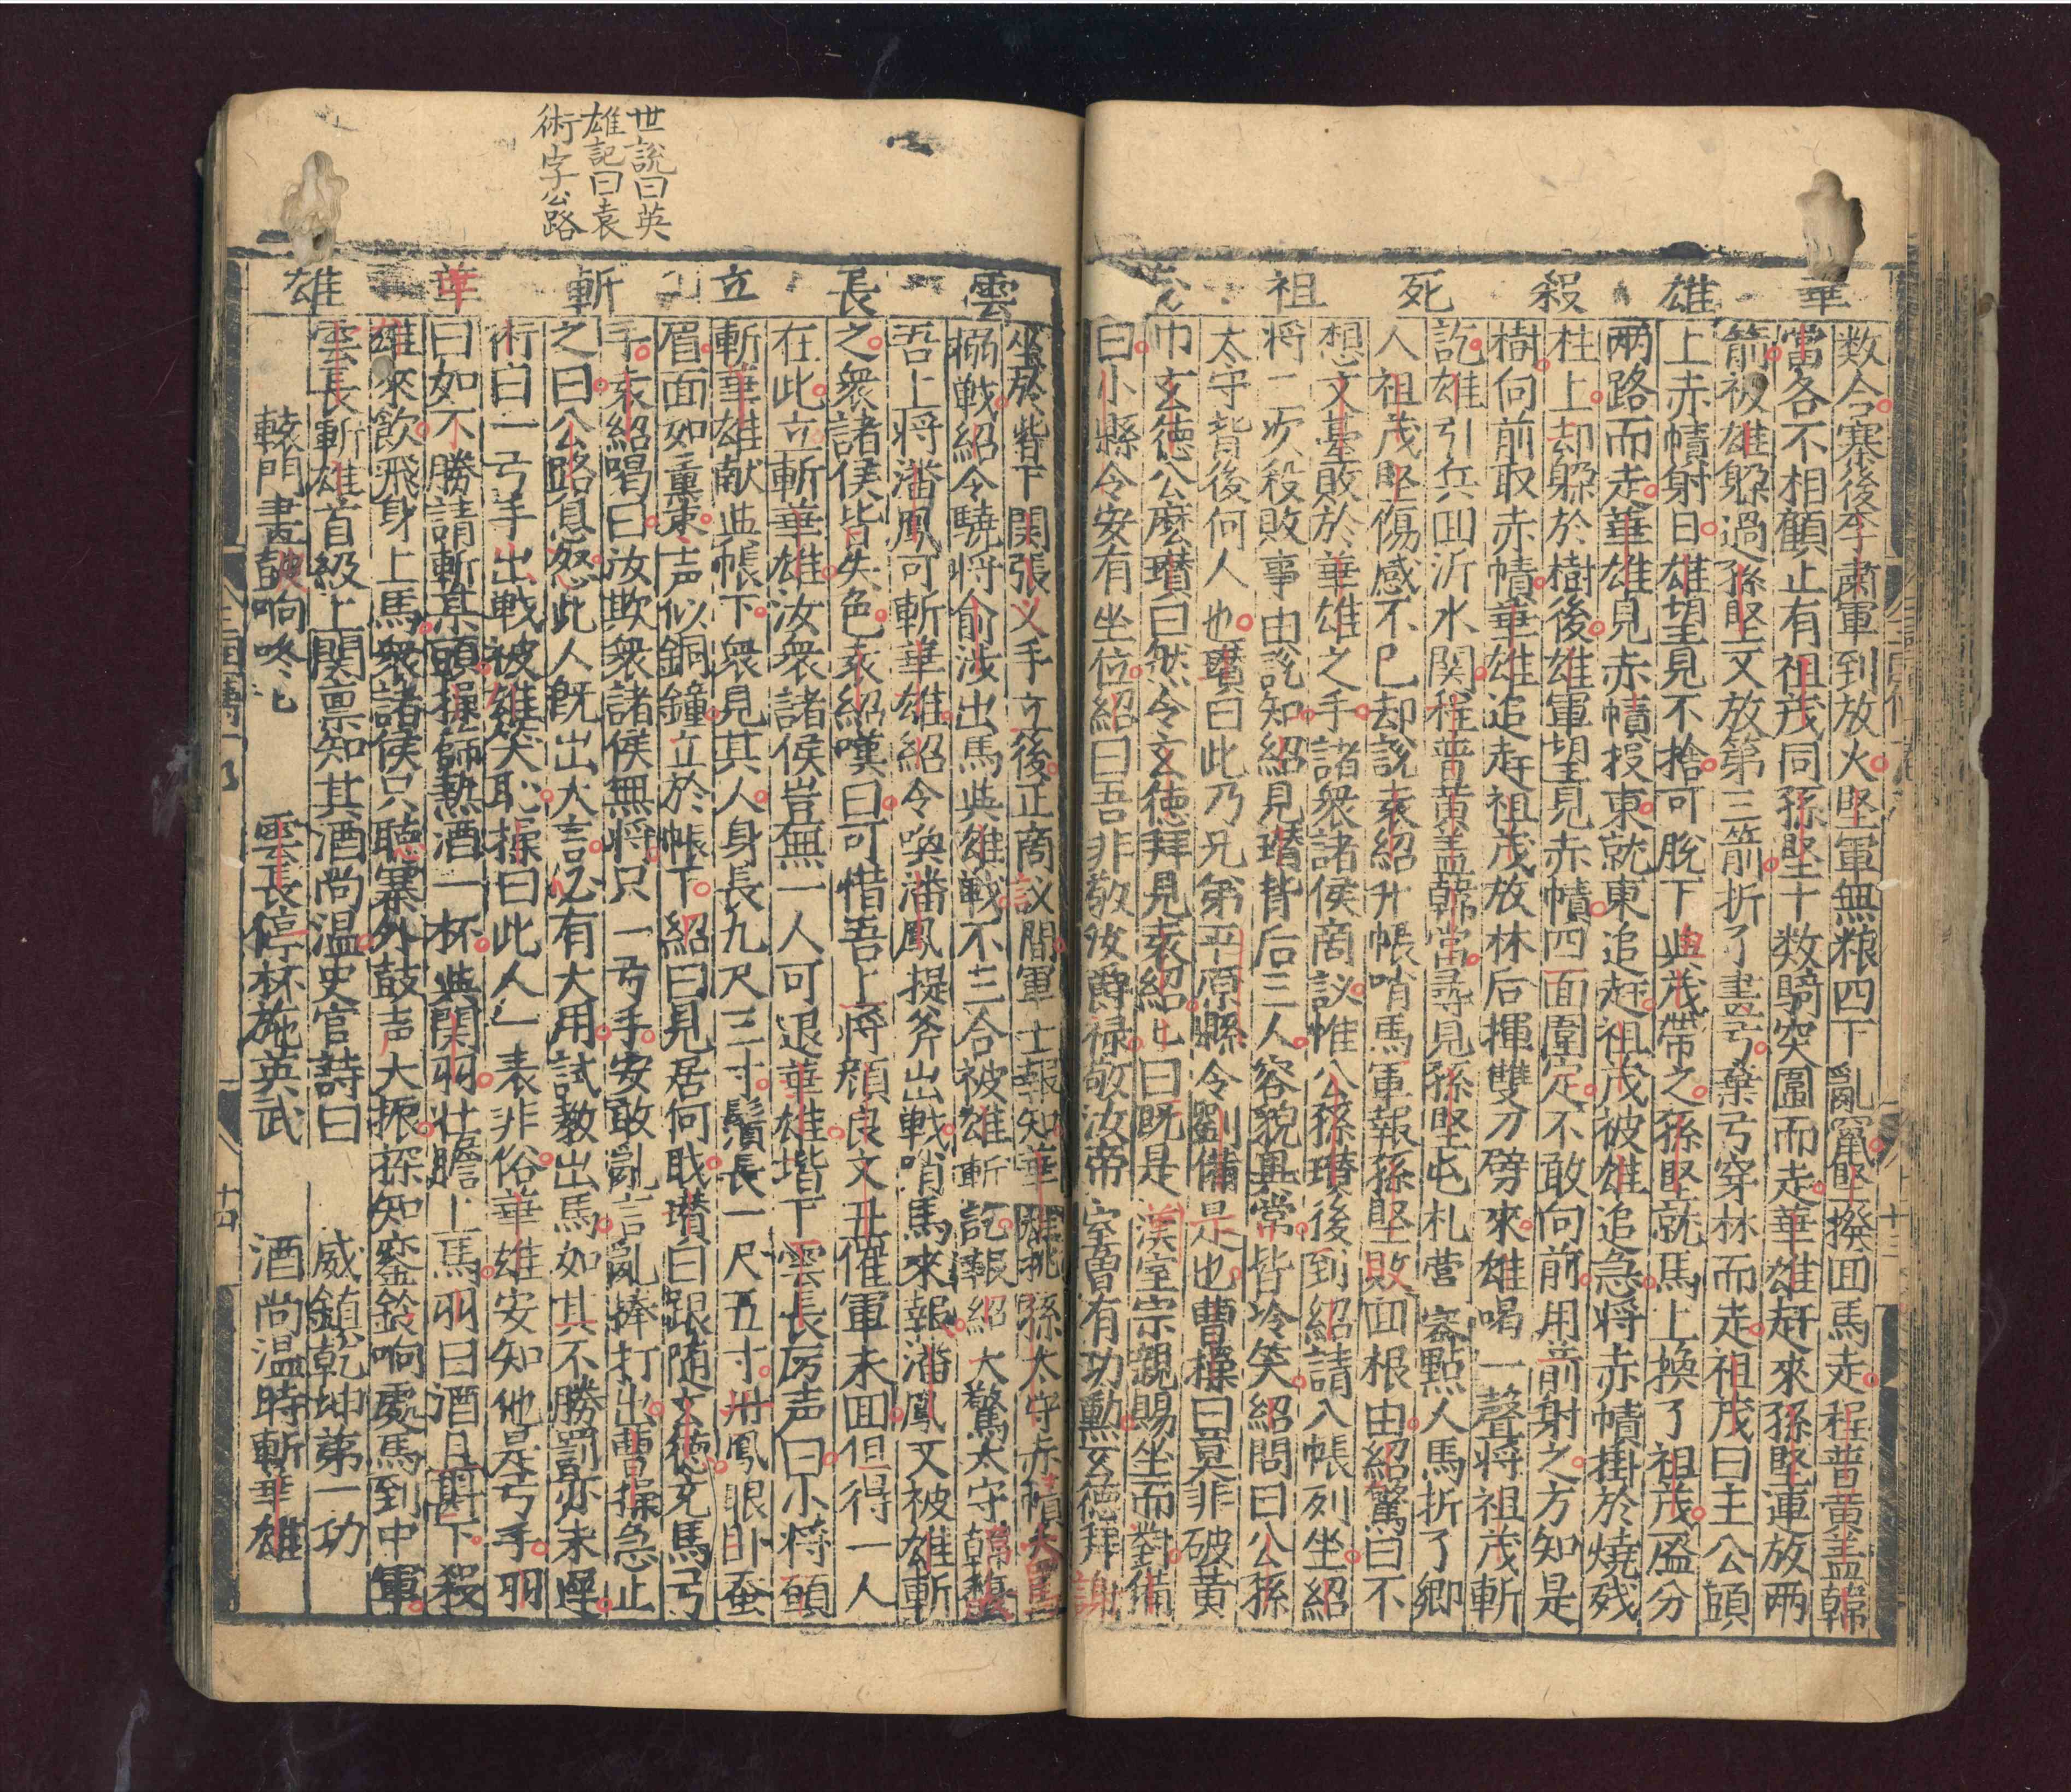 華雄殺死祖茂
数合寨後李肅軍到放火堅軍無粮四下亂竄堅撥囬馬走程普黄盖韓
當各不相顧止有祖茂同孫堅十数騎突圍而走華雄赶來孫堅連放两
箭被雄躲過孫堅又放第三箭折了畫弓棄弓穿林而走祖茂曰主公頭
上赤幘射日雄望見不捨可脱下與茂帶之孫堅就馬上換了祖茂盔分
两路而走華雄見赤幘投東就東追赶祖茂被雄追急將赤幘掛於燒残
柱上却躲於樹後雄軍望見赤幘四面圍定不敢向前用箭射之方知是
樹向前取赤幘華雄追赶祖茂放林后揮雙刀劈來雄喝一聲將祖茂斬
訖雄引兵囬沂水関程普黄盖韓當尋見孫堅屯札營寨點人馬折了鄉
人祖茂堅傷感不已却説袁紹升帳哨馬軍報孫堅敗囬根由紹驚曰不
想文臺敗於華雄之手諸衆諸侯商議惟公孫瓚後到紹請入帳列坐紹
將一次殺敗事由説知紹見瓚背后三人容貌異常皆冷笑紹問曰公孫
太守背後何人也瓚曰此乃兄弟平原縣令劉備是也曹操曰莫非破黄
巾玄徳公麽瓚曰然令玄徳拜見袁紹七曰既是漢室宗親賜坐而對備
曰小縣令安有坐位紹曰吾非敬汝爵禄敬汝帝室曾有功勳玄徳拜謝
雲長立斬華雄
坐於堦下関張义手立後正商議間軍士報知華雄挑孫太守赤幘大罵
搦戰紹令驍將俞渉出馬與雄戰不三合被雄斬訖報紹大驚太守韓馥曰
吾上將潘鳳可斬華雄紹令喚潘鳳提斧出戰哨馬來報潘鳳又被雄斬
之衆諸侯皆失色袁紹嘆曰可惜吾上將顔良文丑催軍未囬但得一人
在此立斬華雄汝衆諸侯豈無一人可退華雄堦下雲長厉声曰小將願
斬華雄献與帳下衆見其人身長九尺三寸鬚長一尺五寸丹鳳眼卧蚕
眉面如重棗声似銅鐘立於帳下紹曰見居何戝瓚曰跟随玄徳充馬弓
手袁紹喝曰汝欺衆諸侯無將只一弓手安敢亂言亂捧打出曹操急止
之曰公路息怒此人既出大言必有大用試教出馬如其不勝罰亦未遅
術曰一弓手出戰被雄笑恥操曰此人一表非俗華雄安知他是弓手羽
曰如不勝請斬某頭操篩熱酒一杯與関羽壮膽上馬羽曰酒且斟下殺
雄來飲飛身上馬衆諸侯只聴寨外鼓声大振探知鑾鈴响處馬到中軍
雲長斬雄首級上関禀知其酒尚温史官詩曰　威鎮乾坤第一功
轅門畫鼓响咚七　雲長停杯施英武　酒尚温時斬華雄
世説曰英
雄記曰袁
術字公路
十三
十四